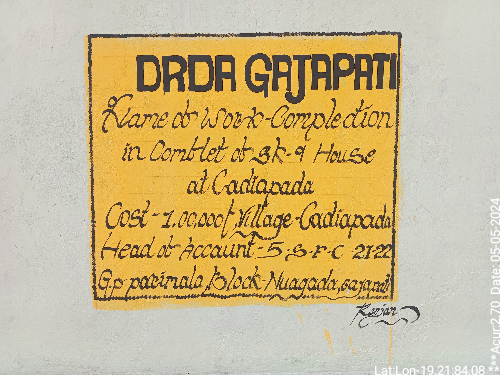 DRDA GAJAPATI
Name of Work-Complection
in Comtlet of SK-9 House
at Cadiapada
Cost-1,00,000/ Village-Cadiapada
Head of Accaunt-5.S.F.C 21-22
G.p parimala, Block-Nuagada, Gajapati
Ranjan
Lat Lon-19.21,84.08
Acur±2.70 Date: 05-05-2024